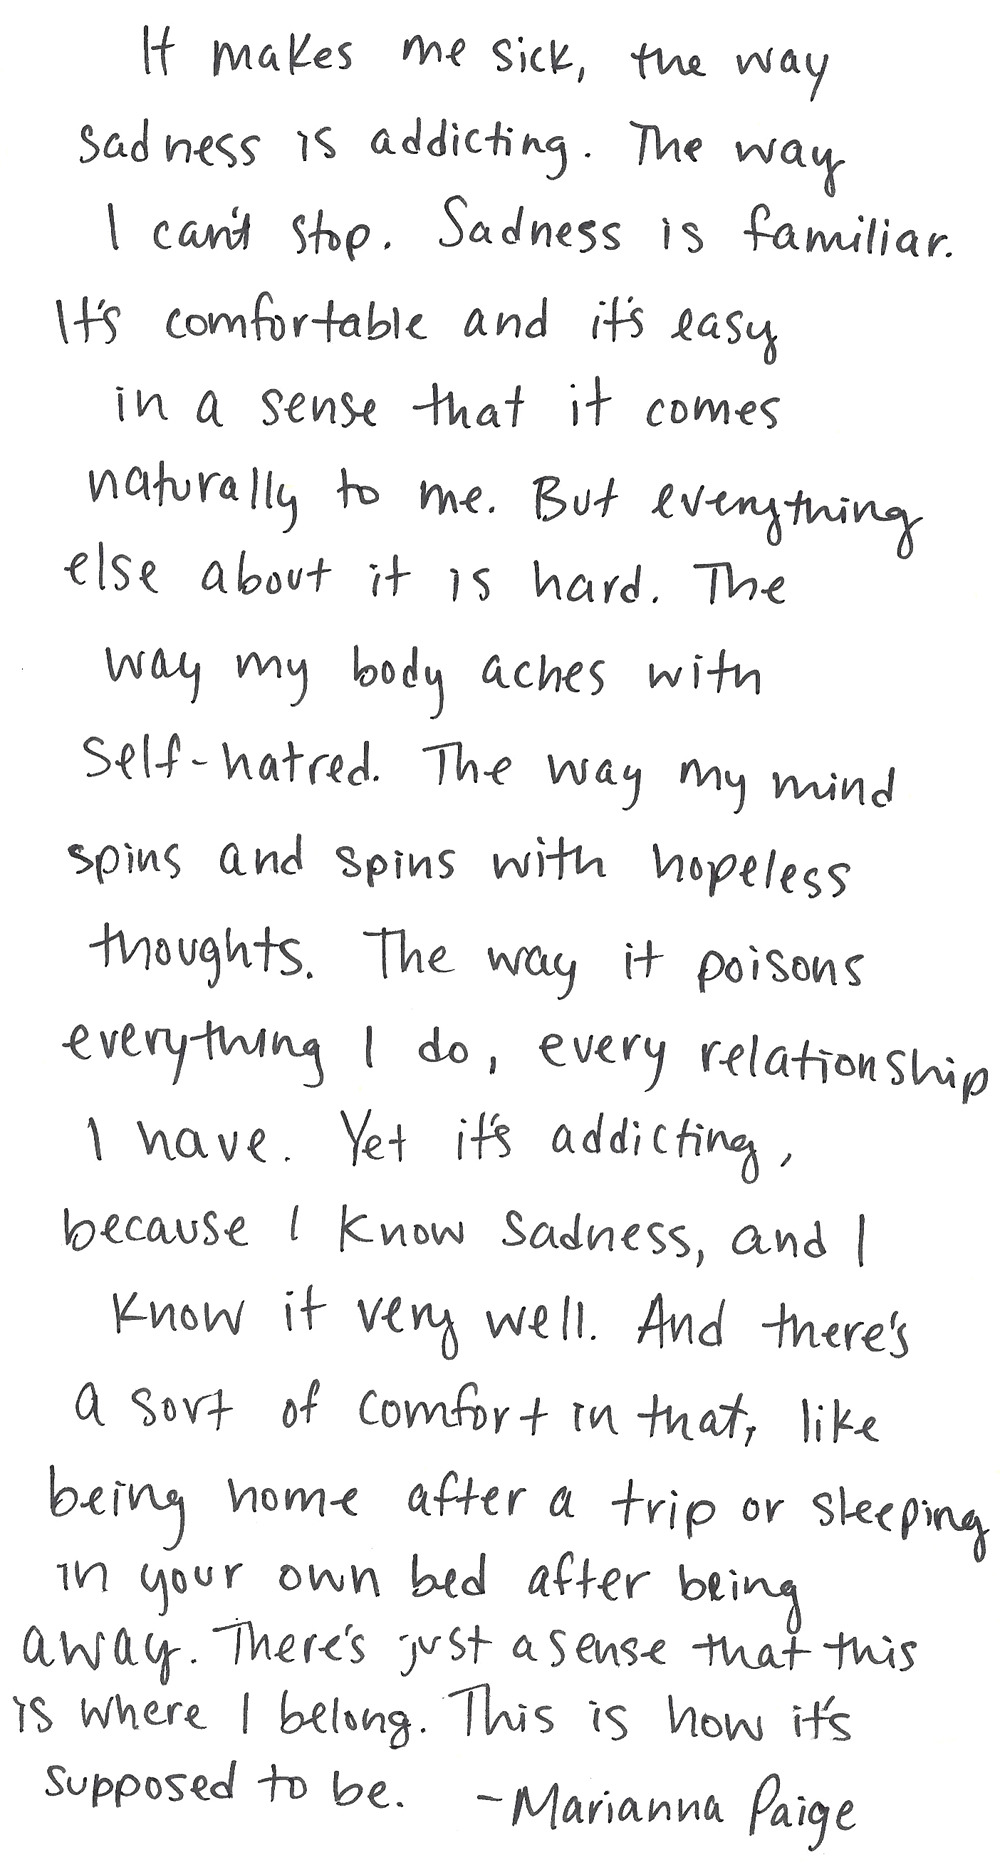 It makes me sick, the way
sadness is addicting. The way
I can't stop. Sadness is familiar.
It's comfortable and it's easy
in a sense that it comes
naturally to me. But everything
else about it is hard. The
way my body aches with
self-hatred. The way my mind
spins and spins with hopeless
thoughts. The way it poisons
everything I do, every relationship
I have. Yet it's addicting,
because I know sadness, and I
know it very well. And there's
a sort of comfort in that, like
being home after a trip or sleeping
in your own bed after being
away. There's just a sense that this
is where I belong. This is how it's
supposed to be. -Marianna Paige